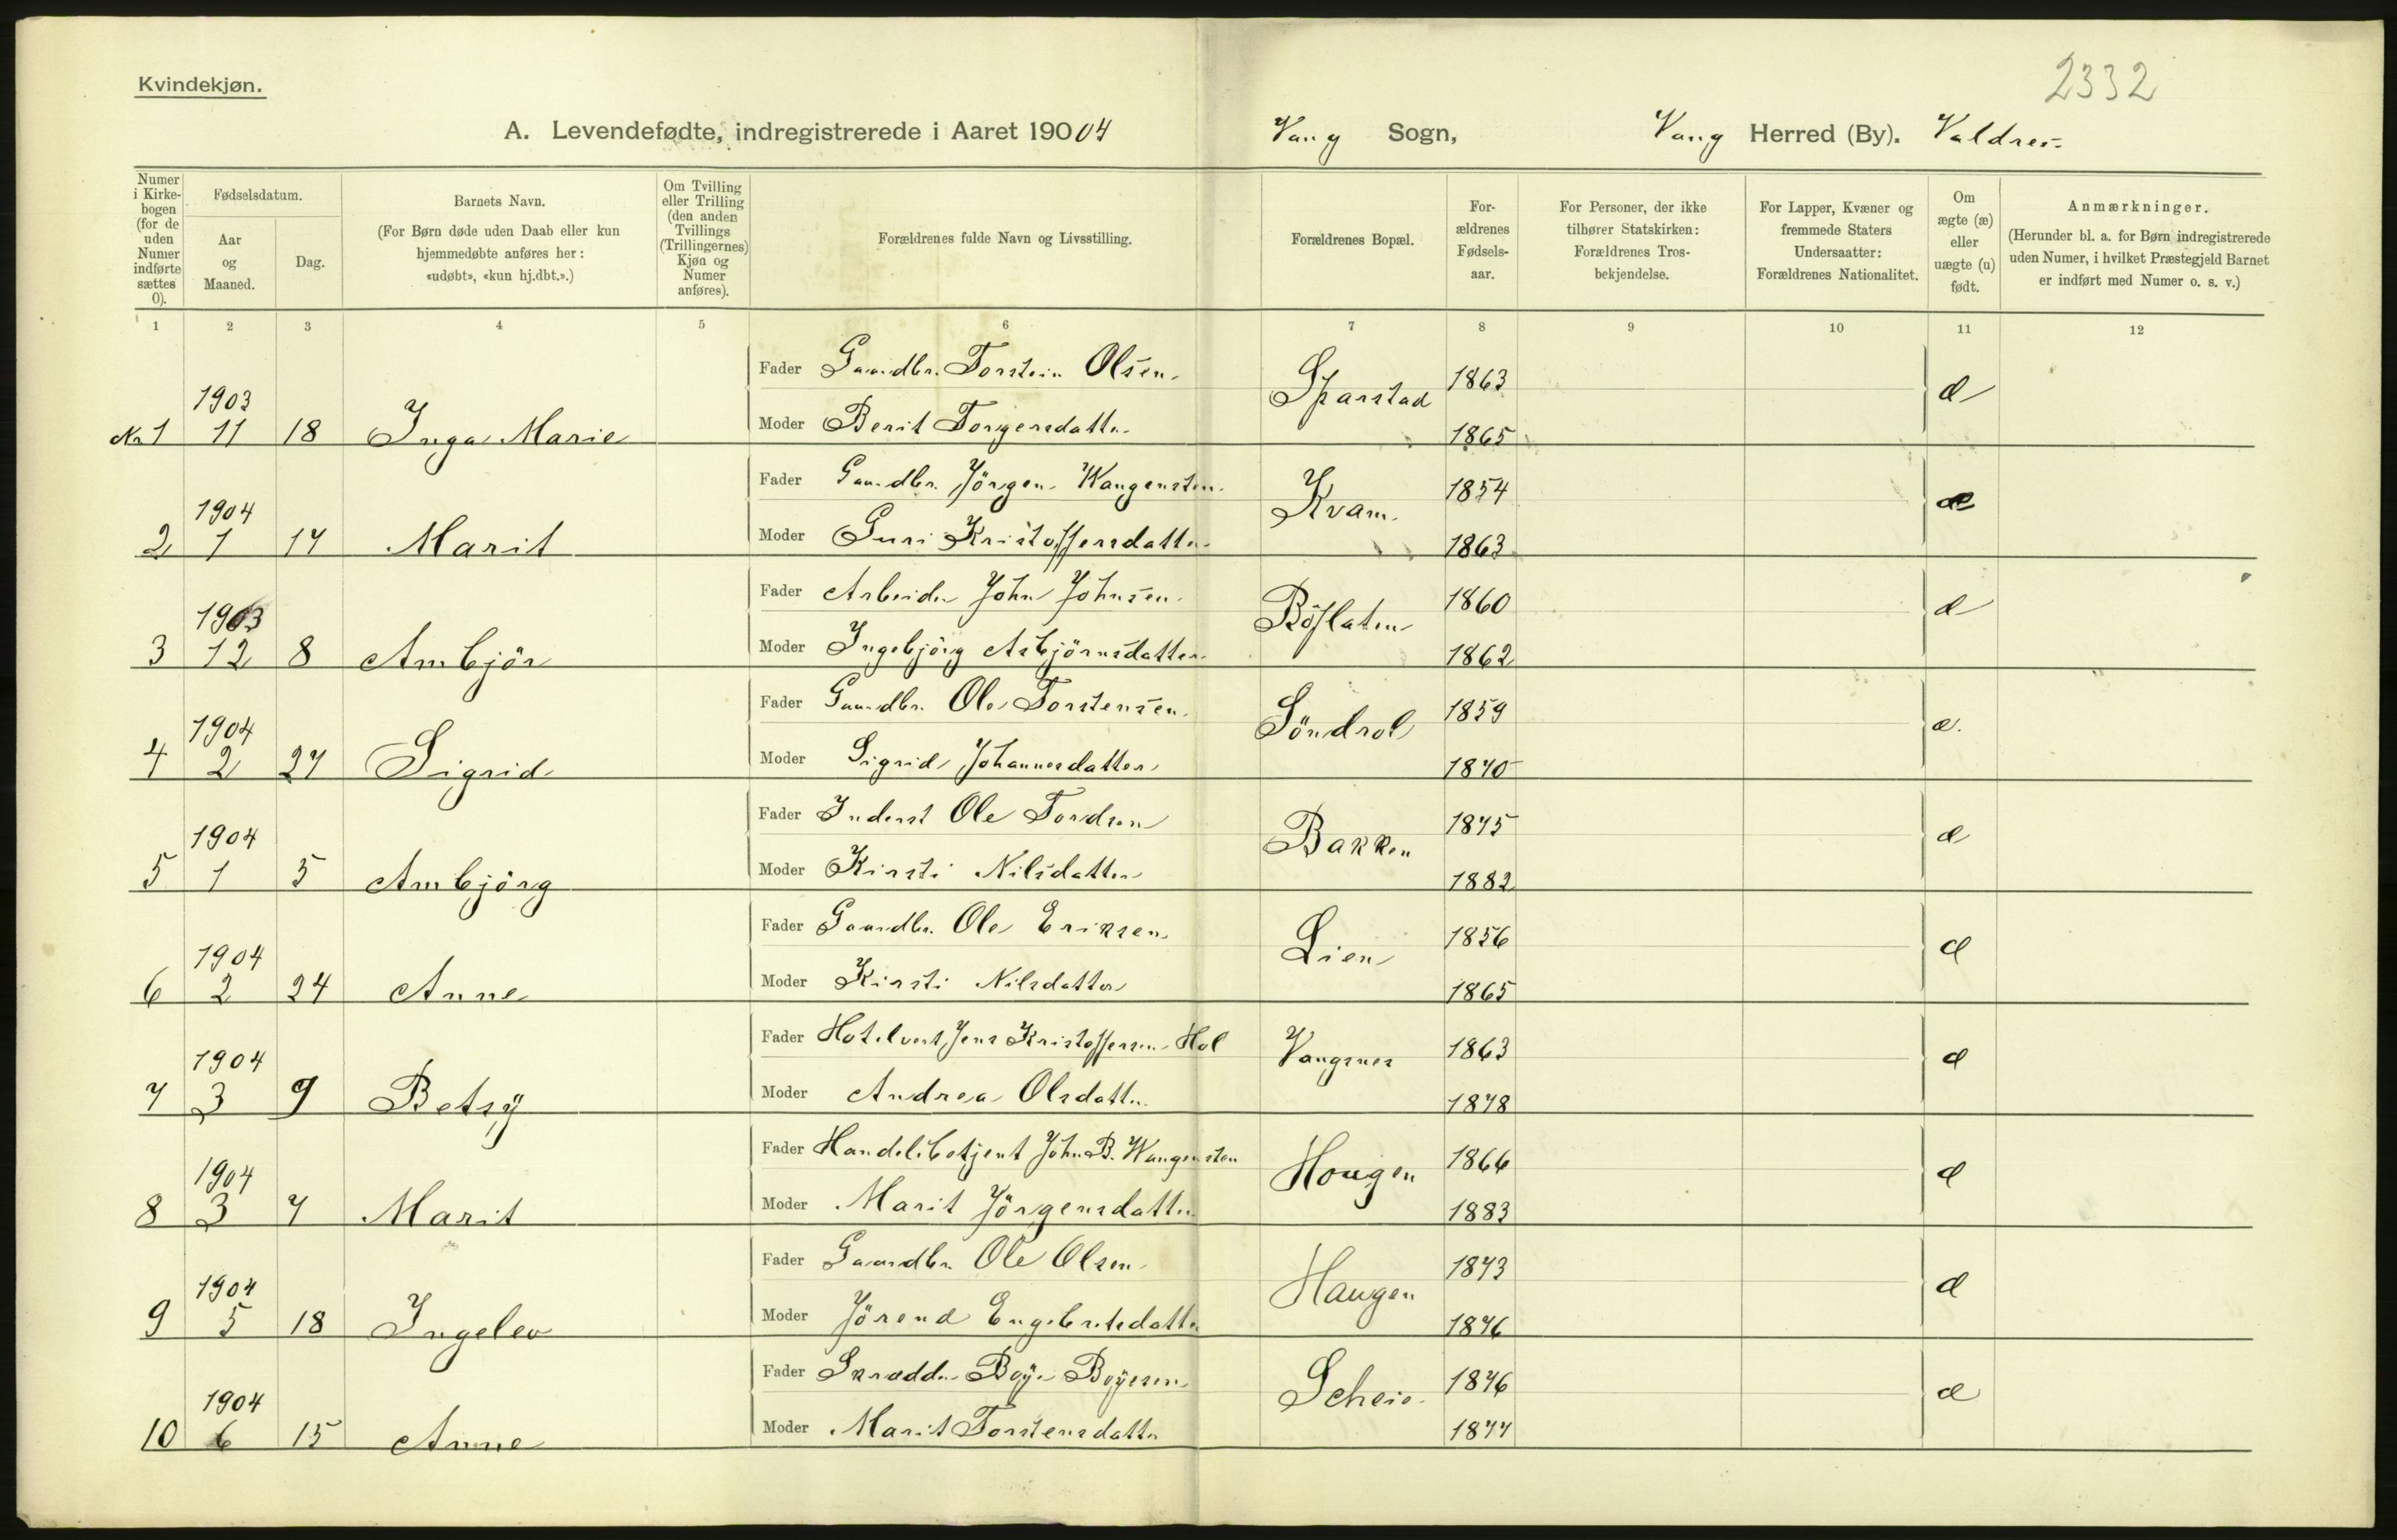 2332
Kvindekjøn.
A. Levendefødte, indregistrerede i Aaret 19004 Vang Sogn, Vang Herred (By). Valdres.
Numer i Kirkebogen (for de uden Numer indførte sættes 0).
Fødselsdatum.
Aar og Maaned.
Dag.
Barnets Navn.
(For Børn døde uden Daab eller kun hjemmedøbte anføres her: «udøbt», «kun hj.dbt.».)
Om Tvilling eller Trilling (den anden Tvillings (Trillingernes) Kjøn og Numer anføres).
Forældrenes fulde Navn og Livsstilling.
Forældrenes Bopæl.
For-ældrenes Fødsels-aar.
For Personer, der ikke tilhører Statskirken: Forældrenes Tros-bekjendelse.
For Lapper, Kvæner og fremmede Staters Undersaatter: Forældrenes Nationalitet.
Om ægte (æ) eller uægte (u) født.
Anmærkninger.
(Herunder bl. a. for Børn indregistrerede uden Numer, i hvilket Præstegjeld Barnet er indført med Numer o. s. v.)
1 2 3 4 5 6 7 8 9 10 11 12
Fader Gaardbr. Torstein Olsen Sparstad 1863 æ
1903
No 1 11 18 Inga Marie Moder Berit Torgersdatter 1865
Fader Gaardbr. Jörgen Wangensten Kvam 1854 æ
1904
2 1 17 Marit Moder Guri Kristoffersdatter 1863
Fader Arbeider John Johnsen Röflaten 1860 æ
1903
3 12 8 Ambjör Moder Ingebjörg Asbjörnsdatter 1862
Fader Gaardbr. Ole Torstensen Söndrol 1859 æ.
1904
4 2 27 Sigrid Moder Sigrid Johannesdatter 1870
Fader Inderst Ole Tordsen Bakken 1875 æ
1904
5 1 5 Ambjörg Moder Kirsti Nilsdatter 1882
Fader Gaardbr. Ole Eriksen Lien 1856 æ
1904
6 2 24 Anne Moder Kirsti Nilsdatter 1865
Fader Hotelvert Jens Kristoffersen Hol Vangsnes 1863 æ
1904
7 3 9 Betsÿ Moder Andrea Olsdatter 1878
Fader Handelsbetjent John B. Wangensten Hougen 1866 æ
1904
8 3 7 Marit Moder Marit Jörgensdatter 1883
Fader Gaardbr. Ole Olsen Haugen 1873 æ
1904
9 5 18 Ingelev Moder Jörend Engebretsdatter 1876
Fader Skrædder Boÿe Boÿesen Scheie 1876 æ
1904
10 6 15 Anne Moder Marit Torstensdatter 1877